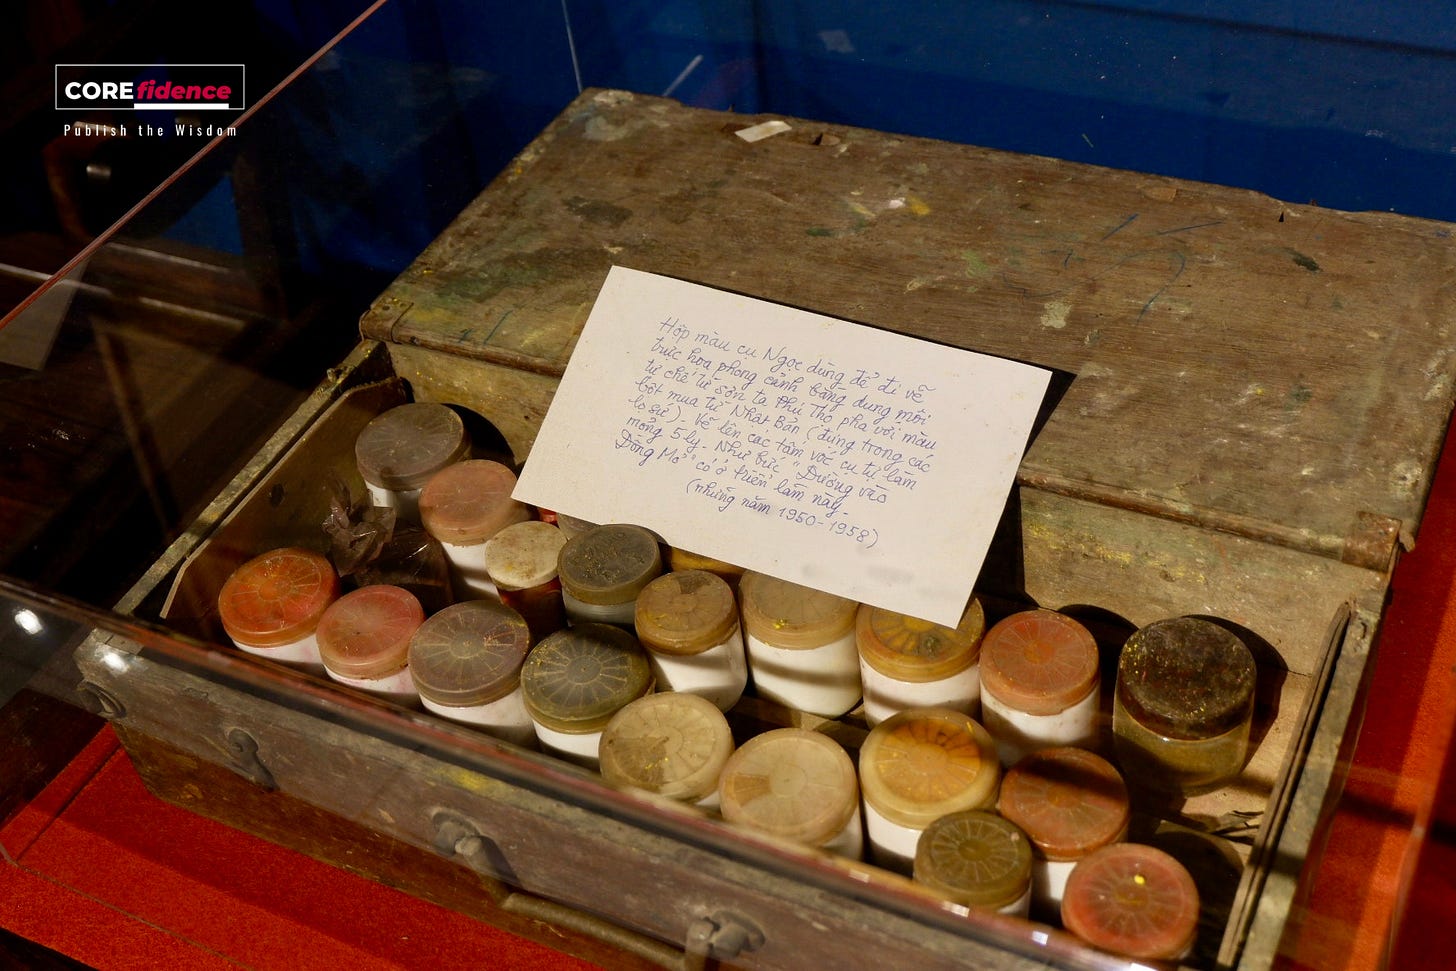 COREfidence
Publish the Wisdom
Hộp màu cụ Ngọc dùng để đi vẽ
trực họa phong cảnh bằng dung môi
tự chế từ sơn ta Phú Thọ pha với màu
bột mua từ Nhật Bản (đựng trong các
lọ sứ). Vẽ lên các tấm vóc cụ tự làm
mỏng 5 ly. Như bức "Đường vào
Đồng Mỏ" có ở triển lãm này.
(những năm 1950-1958)